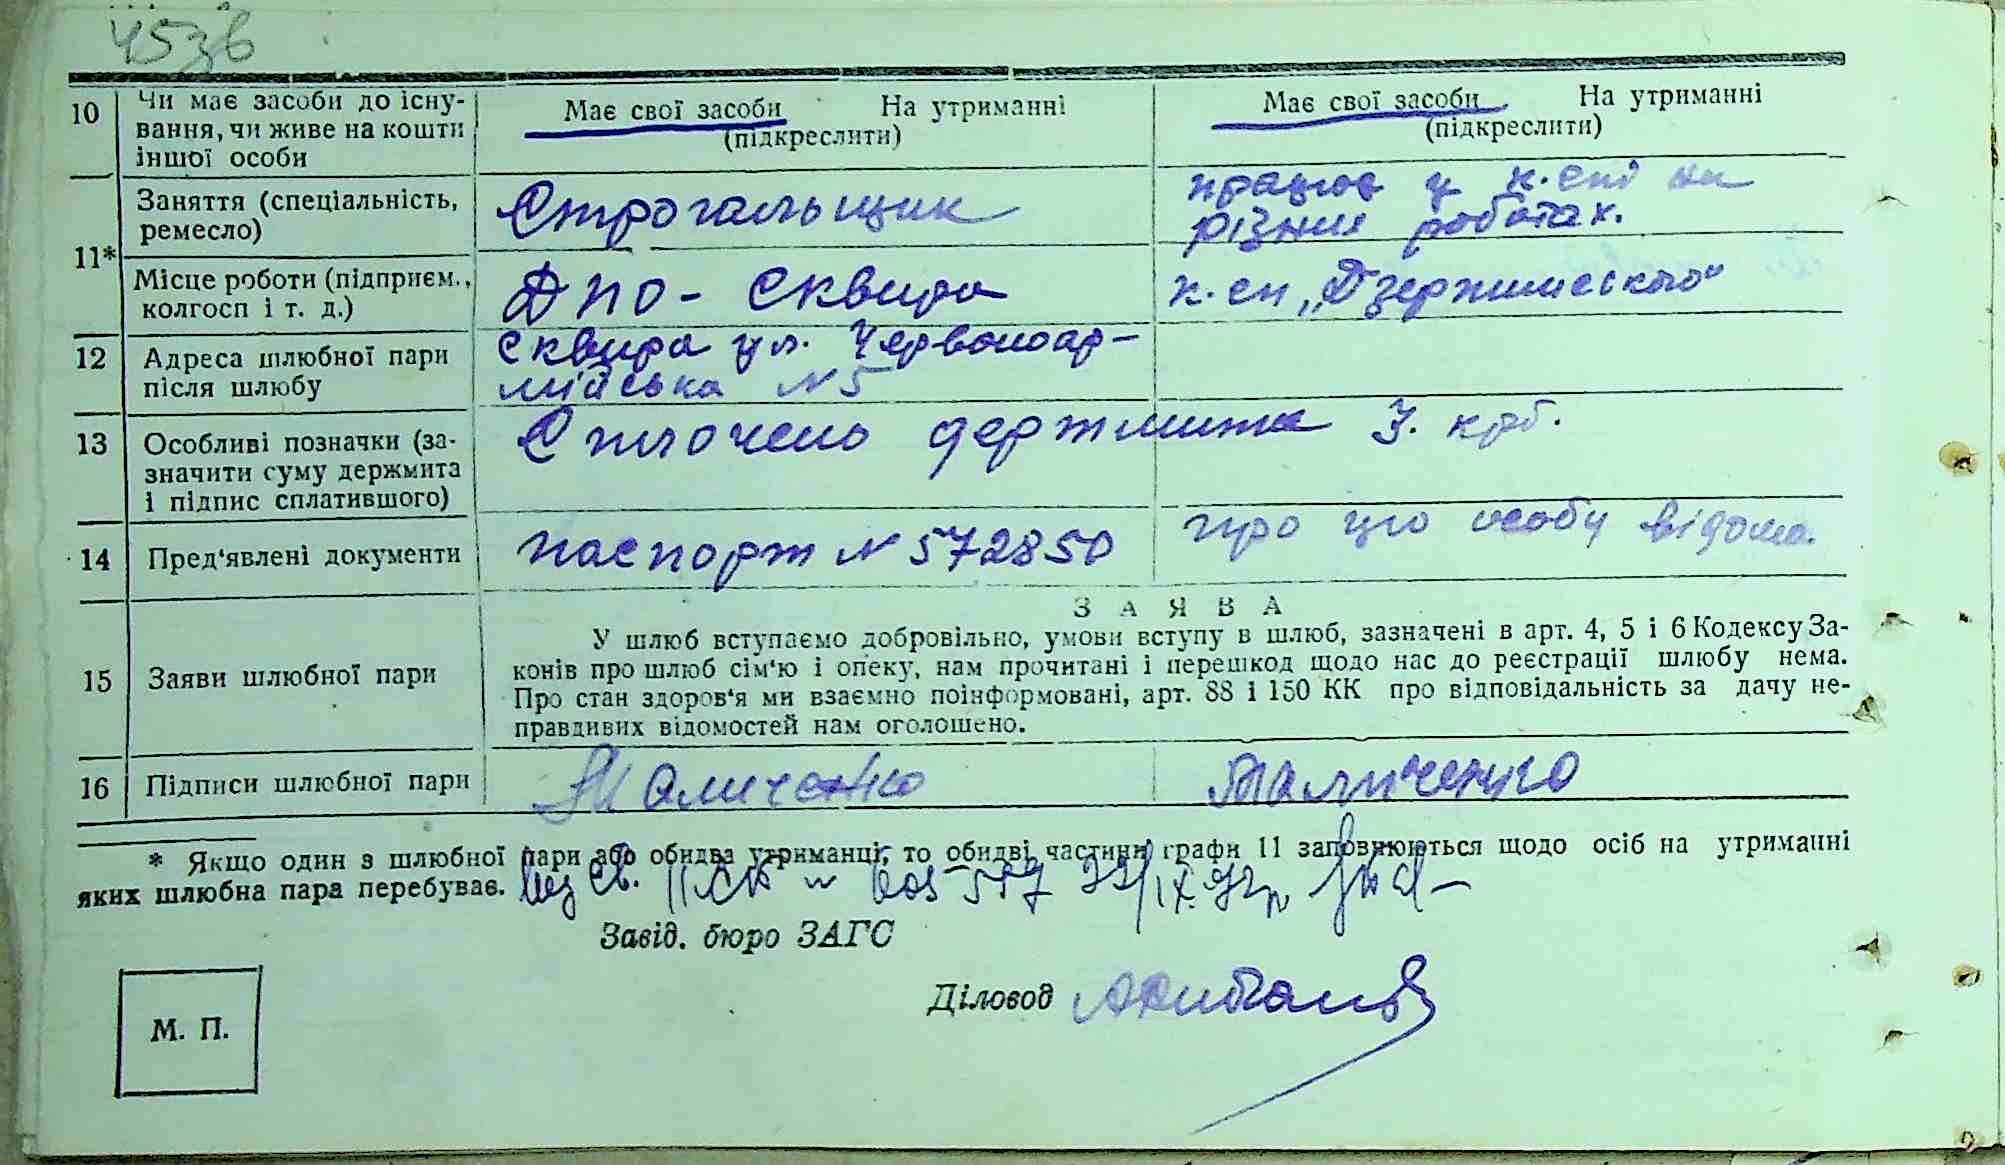 453в
10 Чи має засоби до існу-
вання, чи живе на кошти
іншої особи
Має свої засоби На утриманні
(підкреслити)
Має свої засоби На утриманні
(підкреслити)
11* Заняття (спеціальність,
ремесло)
Строгальщик
працює у к.спі на
різних роботах.
Місце роботи (підприєм.,
колгосп і т. д.)
ДПО - Сквира
к.сп „Дзержинського"
12 Адреса шлюбної пари
після шлюбу
Сквира ул. Червоноар-
мійська N 5
13 Особливі позначки (за-
значити суму держмита
і підпис сплатившого)
Сплочено держмита 3. крб.
14 Пред'явлені документи
паспорт N 572850
про цю особу відома.
15 Заяви шлюбної пари
ЗАЯВА
У шлюб вступаємо добровільно, умови вступу в шлюб, зазначені в арт. 4, 5 і 6 Кодексу За-
конів про шлюб сім'ю і опеку, нам прочитані і перешкод щодо нас до реєстрації шлюбу нема.
Про стан здоров'я ми взаємно поінформовані, арт. 88 і 150 КК про відповідальність за дачу не-
правдивих відомостей нам оголошено.
16 Підписи шлюбної пари
* Якщо один з шлюбної пари або обидва утриманці, то обидві частини графи 11 заповнюються щодо осіб на утриманні
яких шлюбна пара перебуває.
Завід. бюро ЗАГС
Діловод
М. П.